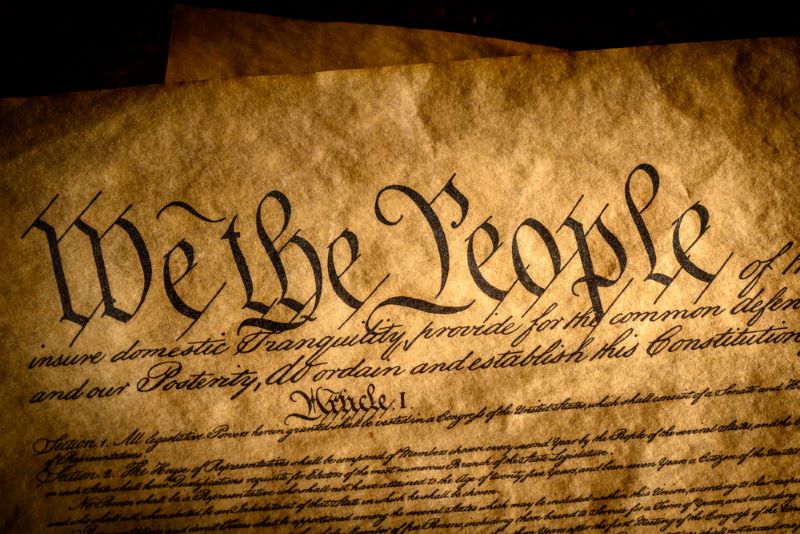 We the People of th
insure domestic Tranquility, provide for the common defen
and our Posterity, do ordain and establish this Constitution
Article. I.
Section. 1. All legislative Powers herein granted shall be vested in a Congress of the United States, which shall consist of a Senate and Ho
of Representatives.
Section. 2. The House of Representatives shall be composed of Members chosen every second Year by the People of the several States, and the
in each State shall have Qualifications requisite for Electors of the most numerous Branch of the State Legislature.
No Person shall be a Representative who shall not have attained to the Age of twenty five Years, and been seven Years a Citizen of the United
and who shall not, when elected, be an Inhabitant of that State in which he shall be chosen.